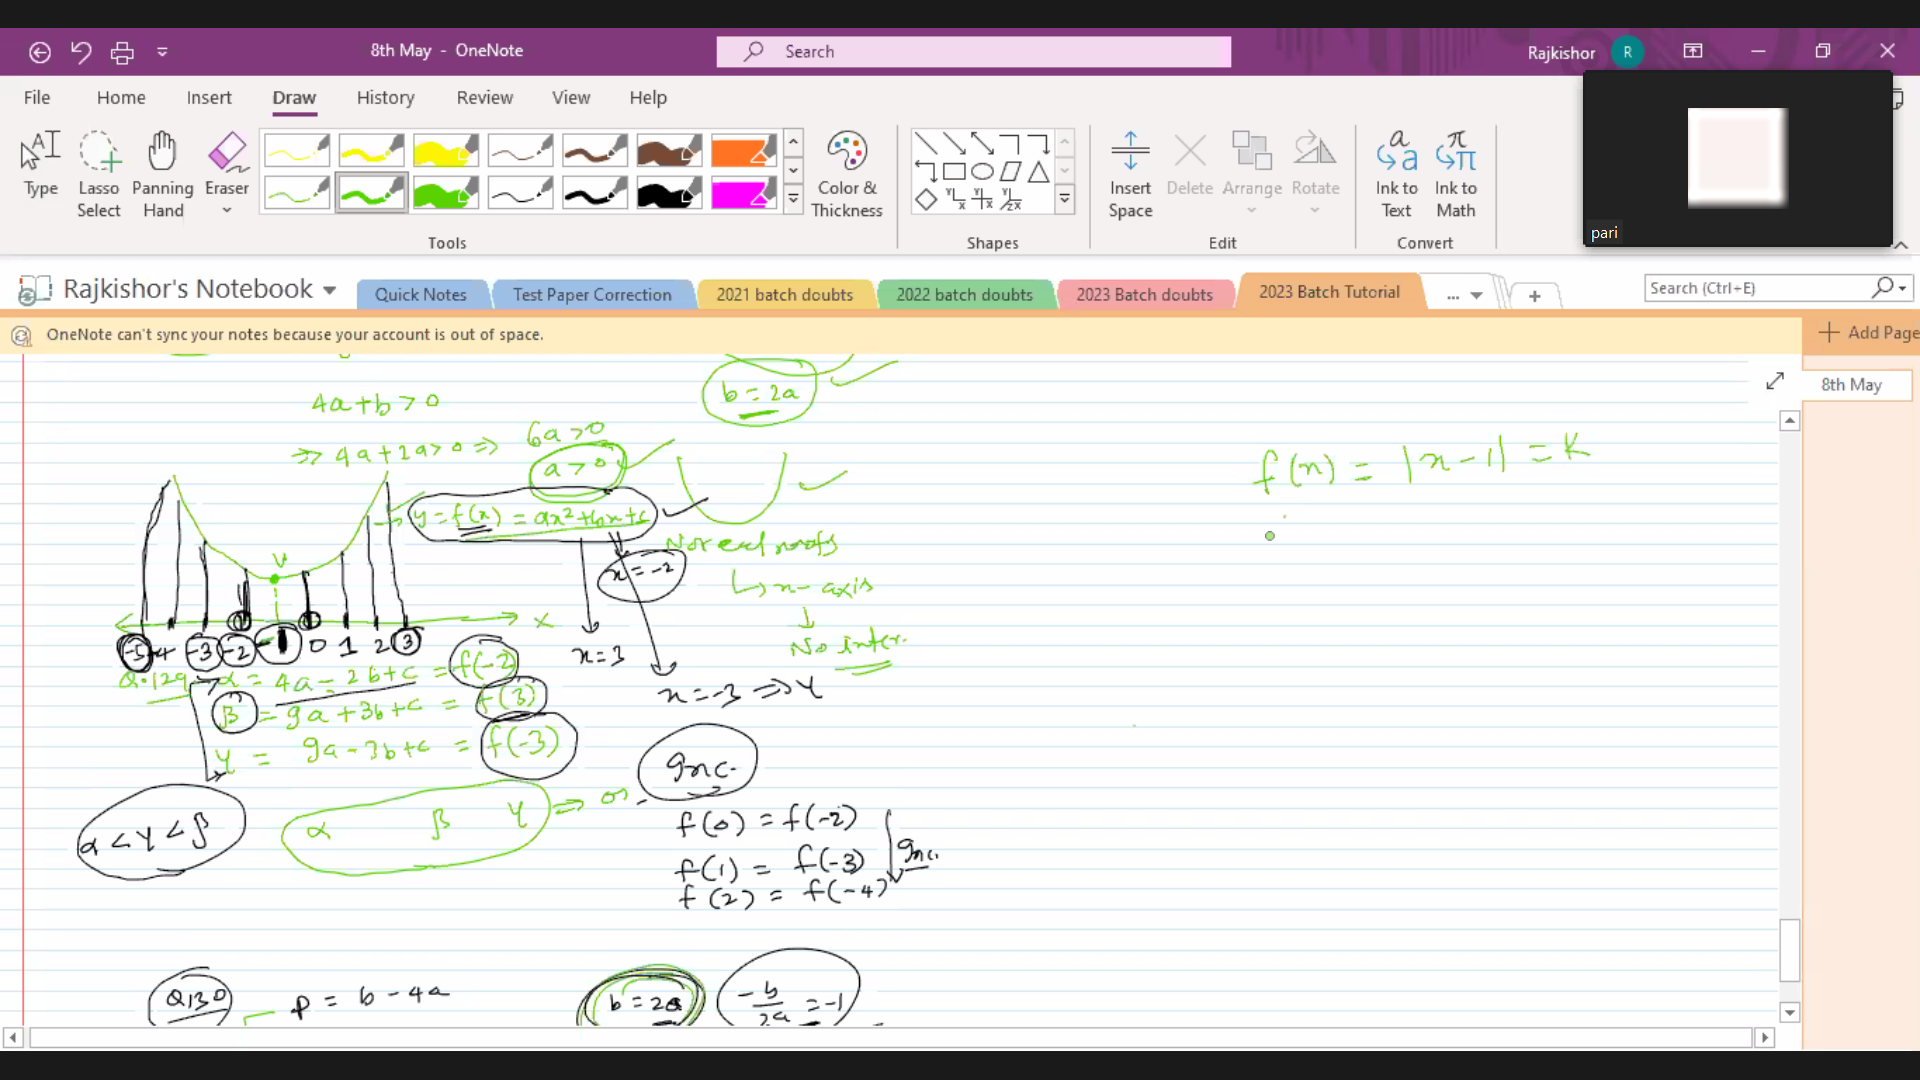 8th May - OneNote
Search
Rajkishor
R
File Home Insert Draw History Review View Help
Type
Lasso Select
Panning Hand
Eraser
Color & Thickness
Insert Space
Delete
Arrange
Rotate
Ink to Text
Ink to Math
Tools
Shapes
Edit
Convert
pari
Rajkishor's Notebook
Quick Notes
Test Paper Correction
2021 batch doubts
2022 batch doubts
2023 Batch doubts
2023 Batch Tutorial
...
Search (Ctrl+E)
OneNote can't sync your notes because your account is out of space.
Add Page
8th May
b = 2a
4a+b > 0
⇒ 4a+2a > 0 ⇒ 6a > 0
a > 0
y = f(x) = ax²+bx+c
No real roots
x = -2
↳ x-axis
↓
No inter.
V
X
-5 -4 -3 -2 -1 0 1 2 3
x = 3
x = -3 ⇒ γ
Q.129 → α = 4a - 2b+c = f(-2)
β = 9a+3b+c = f(3)
γ = 9a-3b+c = f(-3)
α < γ < β
α β γ ⇒
Inc.
f(0) = f(-2)
f(1) = f(-3)
f(2) = f(-4)
Inc.
Q130
P = b - 4a
b = 2a
-b/2a = -1
f(x) = |x-1| = K